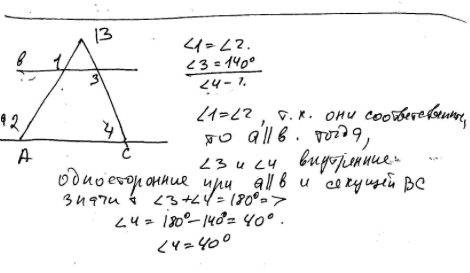 В
в 1 3
∠1 = ∠2.
∠3 = 140°
∠4 - ?
а 2 4
А С
∠1 = ∠2, т.к. они соответственные,
то a ∥ b. тогда,
∠3 и ∠4 внутренние
односторонние при a ∥ b и секущей BC
значит ∠3 + ∠4 = 180° =>
∠4 = 180° - 140° = 40°.
∠4 = 40°